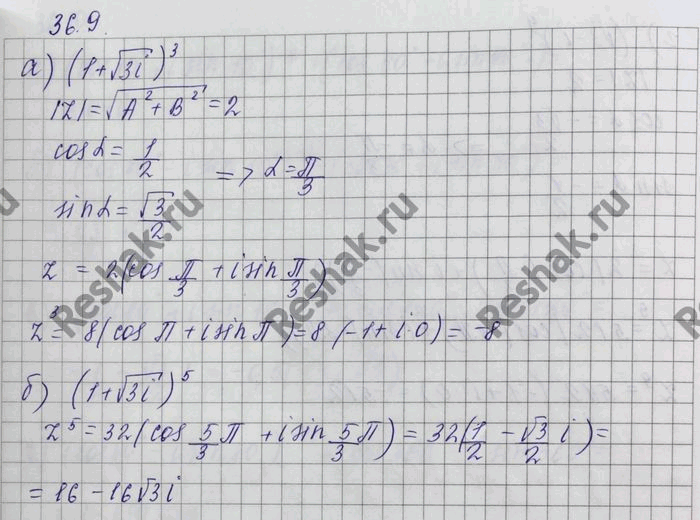 36.9.
а) (1+√3i)³
|Z|=√A²+B²=2
cosα=1/2
=> α=π/3
sinα=√3/2
z = 2(cos π/3 + i sin π/3)
z³= 8(cos π + i sin π)=8 (-1+i·0)= -8
б) (1+√3i)⁵
z⁵=32(cos 5/3 π + i sin 5/3 π)=32(1/2 - √3/2 i)=
= 16 -16√3i
Reshak.ru
Reshak.ru
Reshak.ru